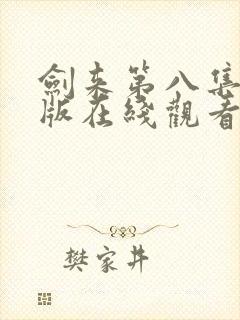 劍来第八集
版在綫觀看
樊家井